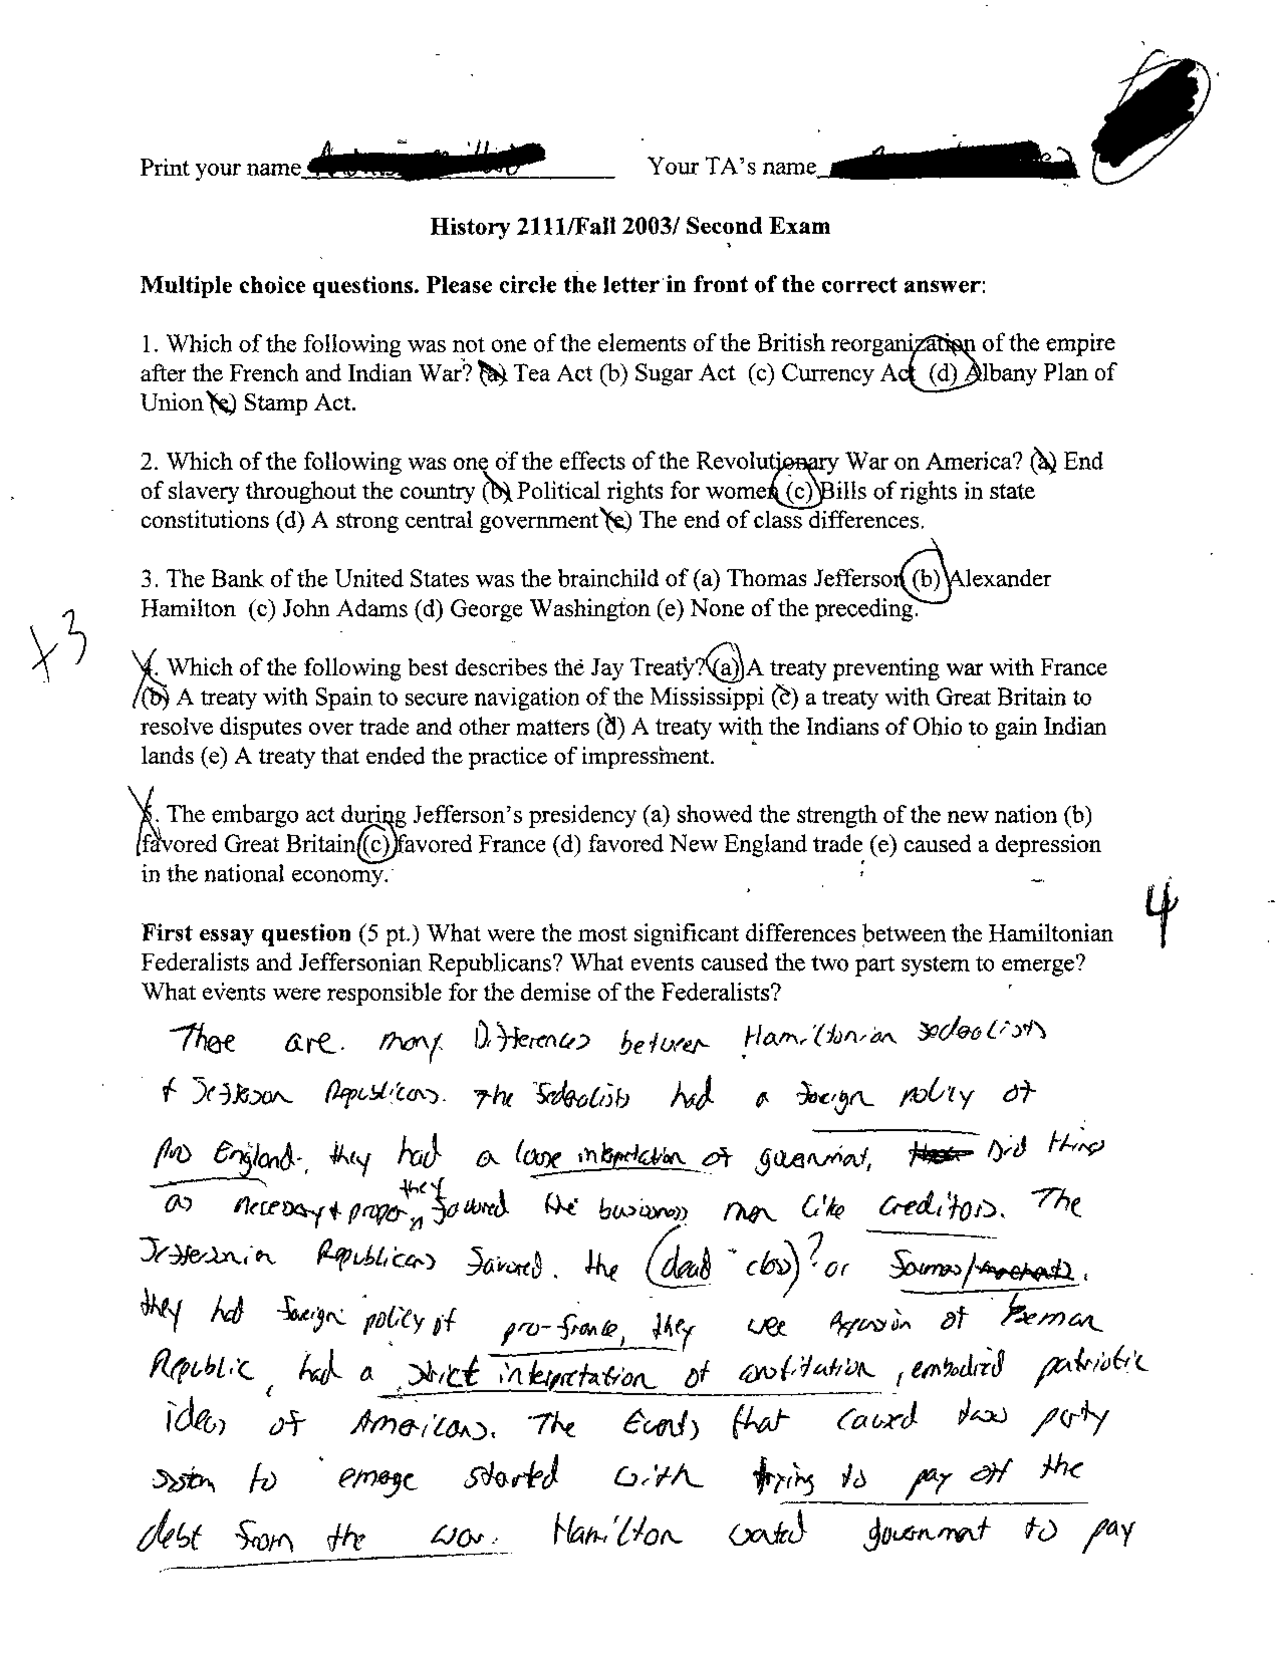 Print your name Your TA's name
History 2111/Fall 2003/ Second Exam
Multiple choice questions. Please circle the letter in front of the correct answer:
1. Which of the following was not one of the elements of the British reorganization of the empire
after the French and Indian War? (a) Tea Act (b) Sugar Act (c) Currency Act (d) Albany Plan of
Union (e) Stamp Act.
2. Which of the following was one of the effects of the Revolutionary War on America? (a) End
of slavery throughout the country (b) Political rights for women (c) Bills of rights in state
constitutions (d) A strong central government (e) The end of class differences.
3. The Bank of the United States was the brainchild of (a) Thomas Jefferson (b) Alexander
Hamilton (c) John Adams (d) George Washington (e) None of the preceding.
+3
4. Which of the following best describes the Jay Treaty? (a) A treaty preventing war with France
(b) A treaty with Spain to secure navigation of the Mississippi (c) a treaty with Great Britain to
resolve disputes over trade and other matters (d) A treaty with the Indians of Ohio to gain Indian
lands (e) A treaty that ended the practice of impressment.
5. The embargo act during Jefferson's presidency (a) showed the strength of the new nation (b)
favored Great Britain (c) favored France (d) favored New England trade (e) caused a depression
in the national economy.
4
First essay question (5 pt.) What were the most significant differences between the Hamiltonian
Federalists and Jeffersonian Republicans? What events caused the two part system to emerge?
What events were responsible for the demise of the Federalists?
There are many Differences between Hamiltonian Fedealists
+ Jefferson Republicans. The Fedealists had a foreign policy of
pro England, they had a loose interpretation of government, Did things
as necessary + proper, they favoured the business men like creditors. The
Jeffersonian Republicans favored the (dead class)? or
they had foreign policy of pro-france, they were of
Republic, had a strict interpretation of constitution, embodied patriotic
ideas of Americans. The Events that caused two party
system to emerge started with trying to pay off the
debt from the war. Hamilton wanted government to pay